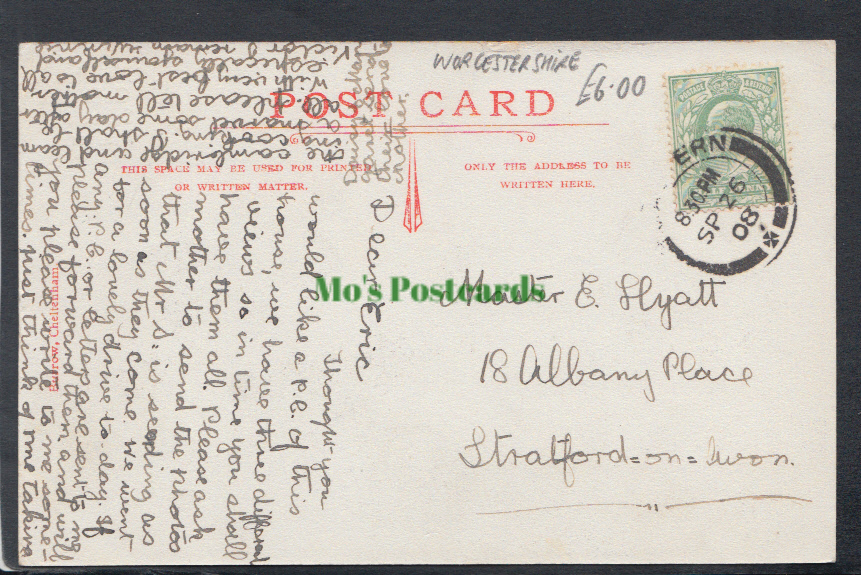 WORCESTERSHIRE
£6.00
POST CARD
THIS SPACE MAY BE USED FOR PRINTED
OR WRITTEN MATTER.
ONLY THE ADDRESS TO BE
WRITTEN HERE.
ERN
8.30 PM
SP 26
08
Mo's Postcards
Master E. Hyatt
18 Albany Place
Stratford=on=Avon.
Burrow, Cheltenham
Dear Eric
Thought you
would like a p.c. of this
house, we have three different
views so in time you shall
have them all. Please ask
mother to send the photos
that Mr S. is sending as
soon as they come. we went
for a lovely drive to-day. If
any P.C. or letters are sent to me
please forward them and will
you please write to me some-
times. just think of me taking
the Cambridge and
shall
cook
a marvel some day
all. Please tell mother
with very best love to all
another.